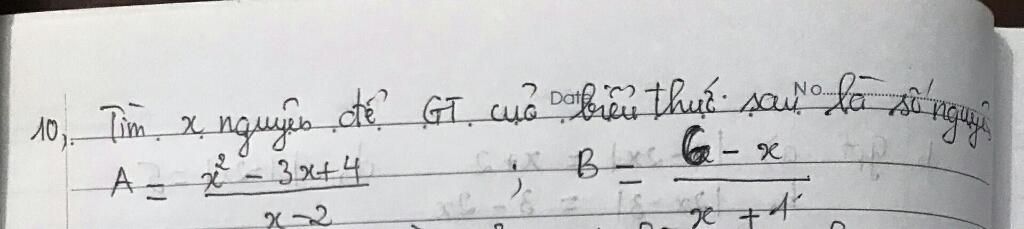 10, Tìm x nguyên để GT cuả biểu thức sau là số nguyê
Date No
A = x² - 3x+4 / x-2 ; B = 6 - x / x + 1